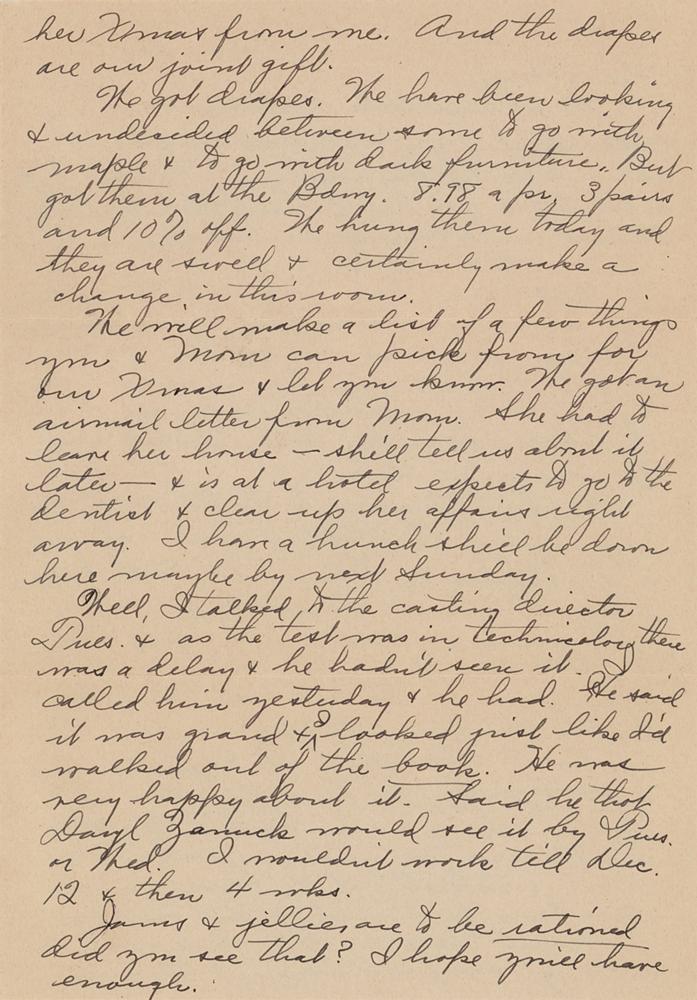 her Xmas from me. And the drapes
are our joint gift.
We got drapes. We have been looking
& undesided between some to go with
maple & to go with dark furniture. But
got them at the Bdwy. 8.98 a pr, 3 pairs
and 10% off. We hung them today and
they are swell & certainly make a
change in this room.
We will make a list of a few things
you & Mom can pick from for
our Xmas & let you know. We got an
airmail letter from Mom. She had to
leave her house – she'll tell us about it
later – & is at a hotel expects to go to the
dentist & clear up her affairs right
away. I have a hunch she'll be down
here maybe by next Sunday.
Well, I talked to the casting director
Tues. & as the test was in technicolor there
was a delay & he hadn't seen it. I
called him yesterday & he had. He said
it was grand & I looked just like I'd
walked out of the book. He was
very happy about it. Said he that
Daryl Zanuck would see it by Tues.
or Wed. I wouldn't work till Dec.
12 & then 4 wks.
Jams & jellies are to be rationed
did you see that? I hope you'll have
enough.